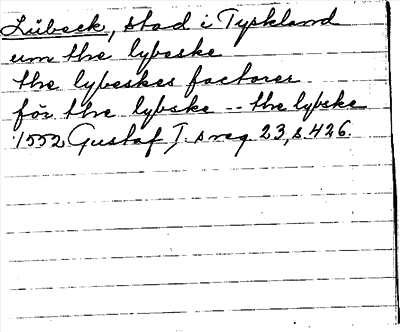 Lübeck, stad i Tyskland
um the lybeske
the lybeskes factorer
för the lybske -- the lybske
1552 Gustaf I.s reg 23, s. 426.